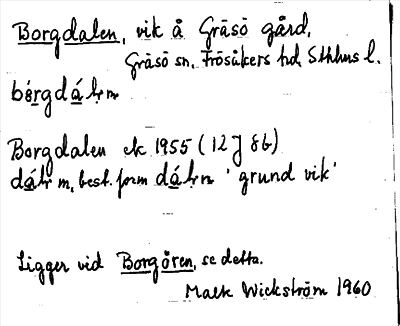 Borgdalen, vik å Gräsö gård,
Gräsö sn, Frösåkers hd, Sthlms l.
Borgdalen ek 1955 (12J 8b)
m, best. form 'grund vik'
Ligger vid Borgören, se detta.
Wickström 1960